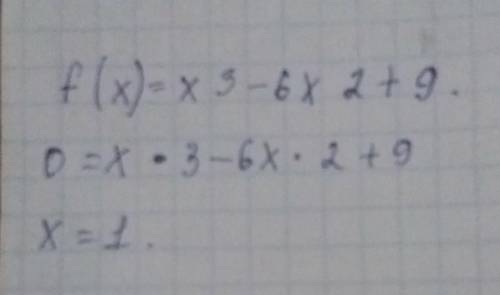 f(x)=x 3-6x 2+9.
0=x·3-6x·2+9
x=1.